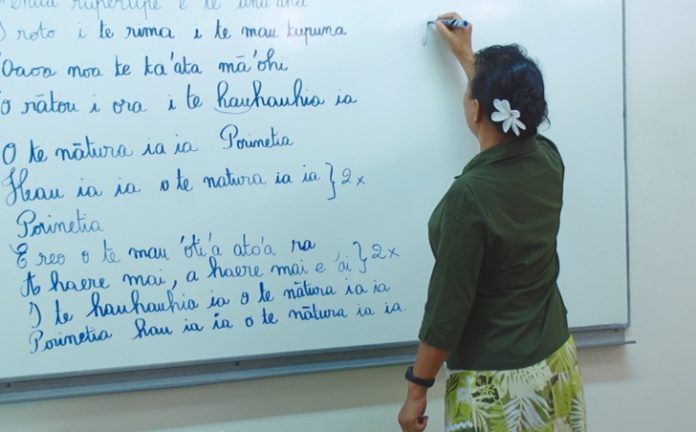 fenua rupe e te una'una
I roto i te rima i te mau tupuna
'Oaoa noa te ta'ata mā'ohi
'O rātou i ora i te hauhauhia ia
O te nātura ia ia Porinetia
Heau ia ia o te natura ia ia } 2x
Porinetia
E reo o te mau 'oti'a ato'a ra
A haere mai, a haere mai e 'āi } 2x
I te hauhauhia ia o te nātura ia ia
Porinetia hau ia ia o te nātura ia ia.